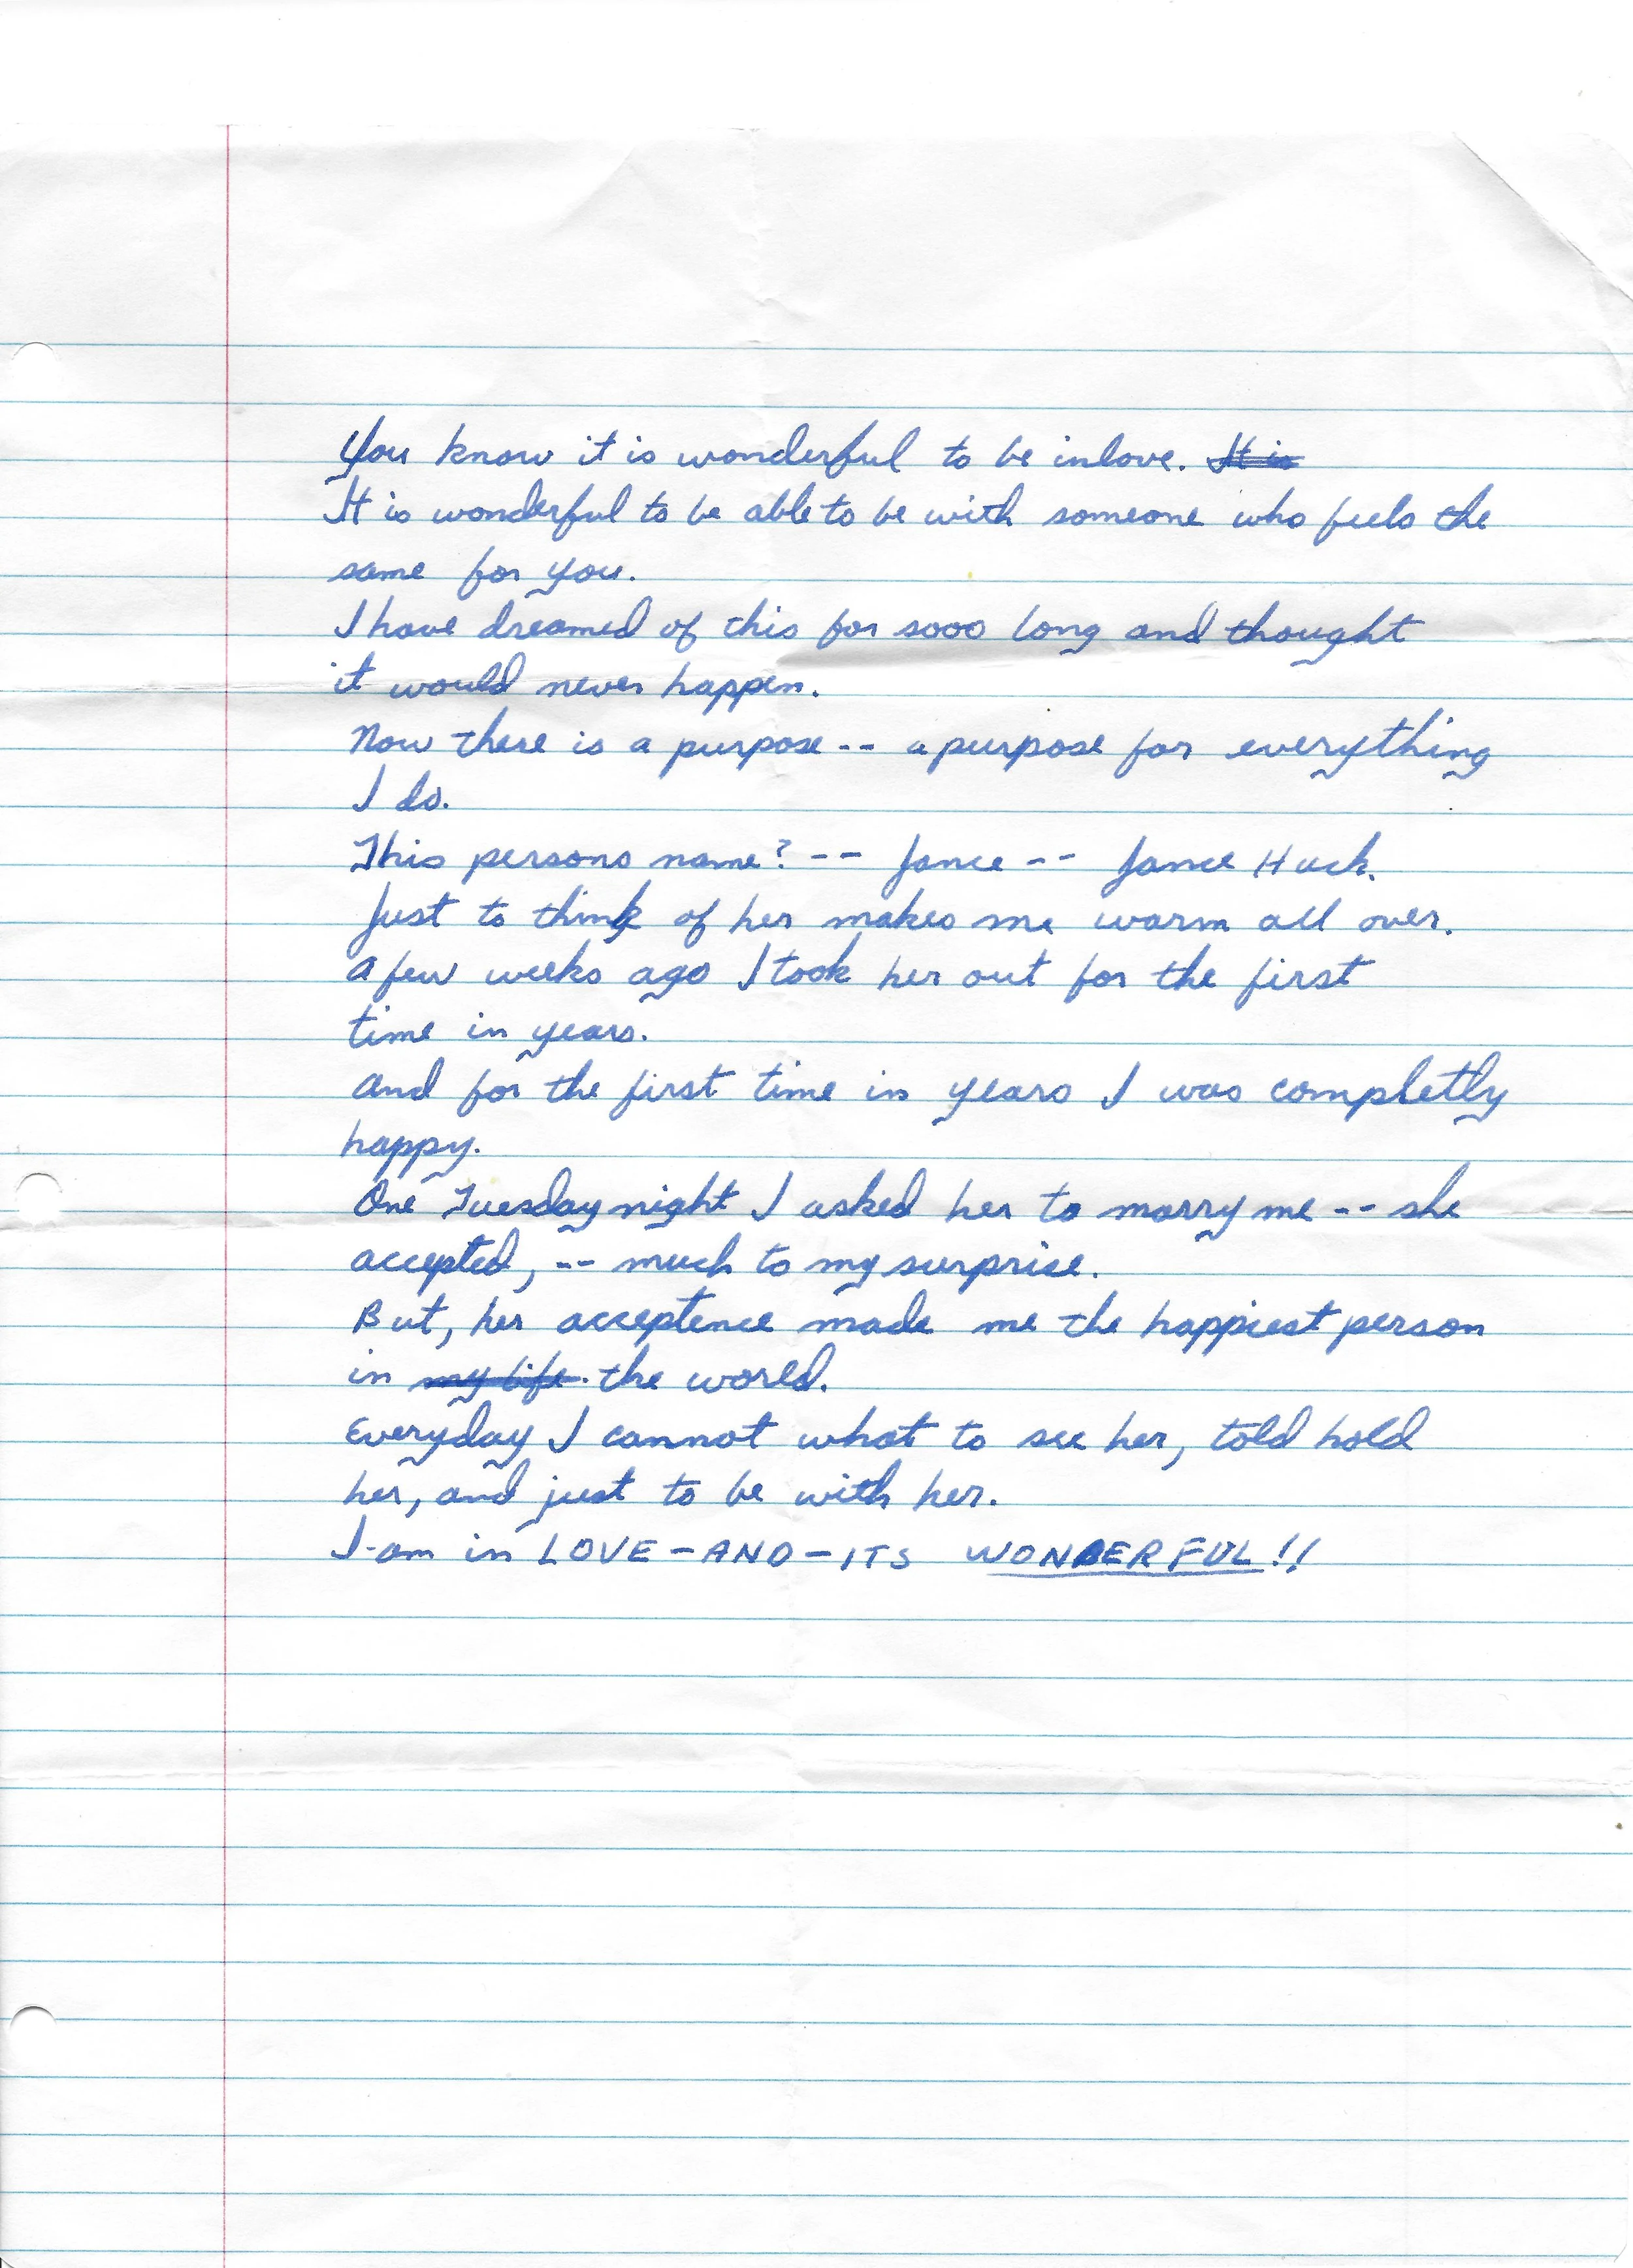 You know it is wonderful to be inlove. It is
It is wonderful to be able to be with someone who feels the
same for you.
I have dreamed of this for sooo long and thought
it would never happen.
Now there is a purpose -- a purpose for everything
I do.
This persons name? -- Jance -- Jance Huck.
Just to think of her makes me warm all over.
A few weeks ago I took her out for the first
time in years.
And for the first time in years I was completly
happy.
One Tuesday night I asked her to marry me -- she
accepted, -- much to my surprise.
But, her acceptence made me the happiest person
in my life. the world.
Everyday I cannot what to see her, told hold
her, and just to be with her.
I am in LOVE-AND-ITS WONDERFUL!!